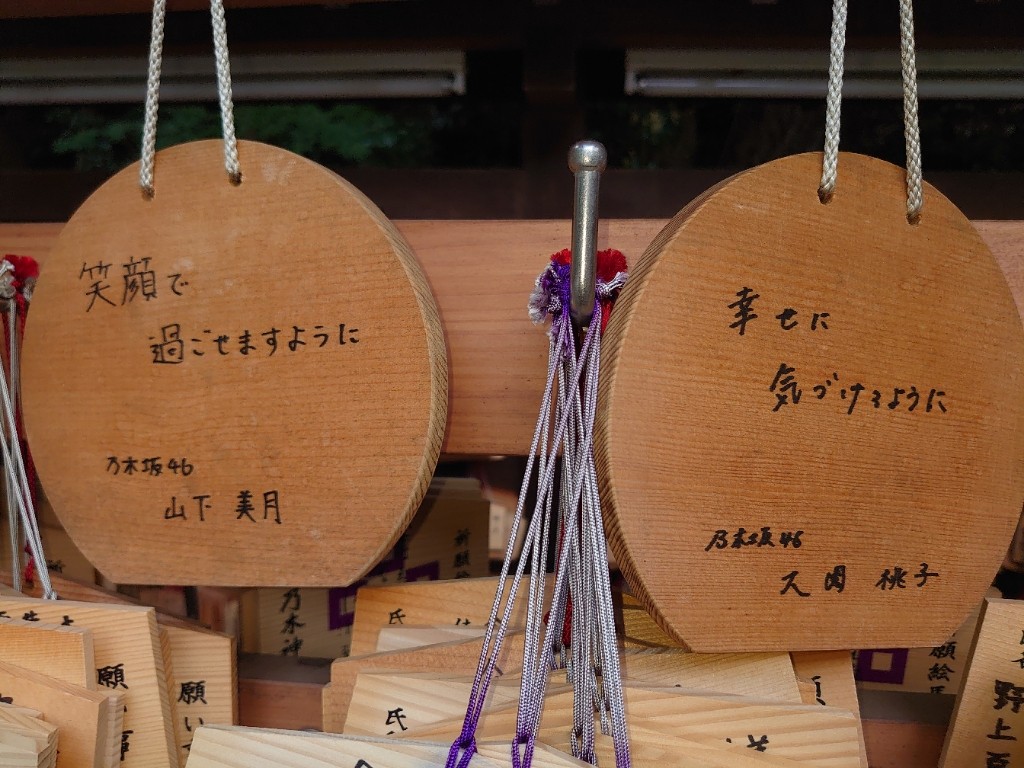 笑顔で
過ごせますように
乃木坂46
山下 美月
幸せに
気づけるように
乃木坂46
久保 桃子
乃木神
祈願絵
氏
氏
願い
願
願絵馬
野上